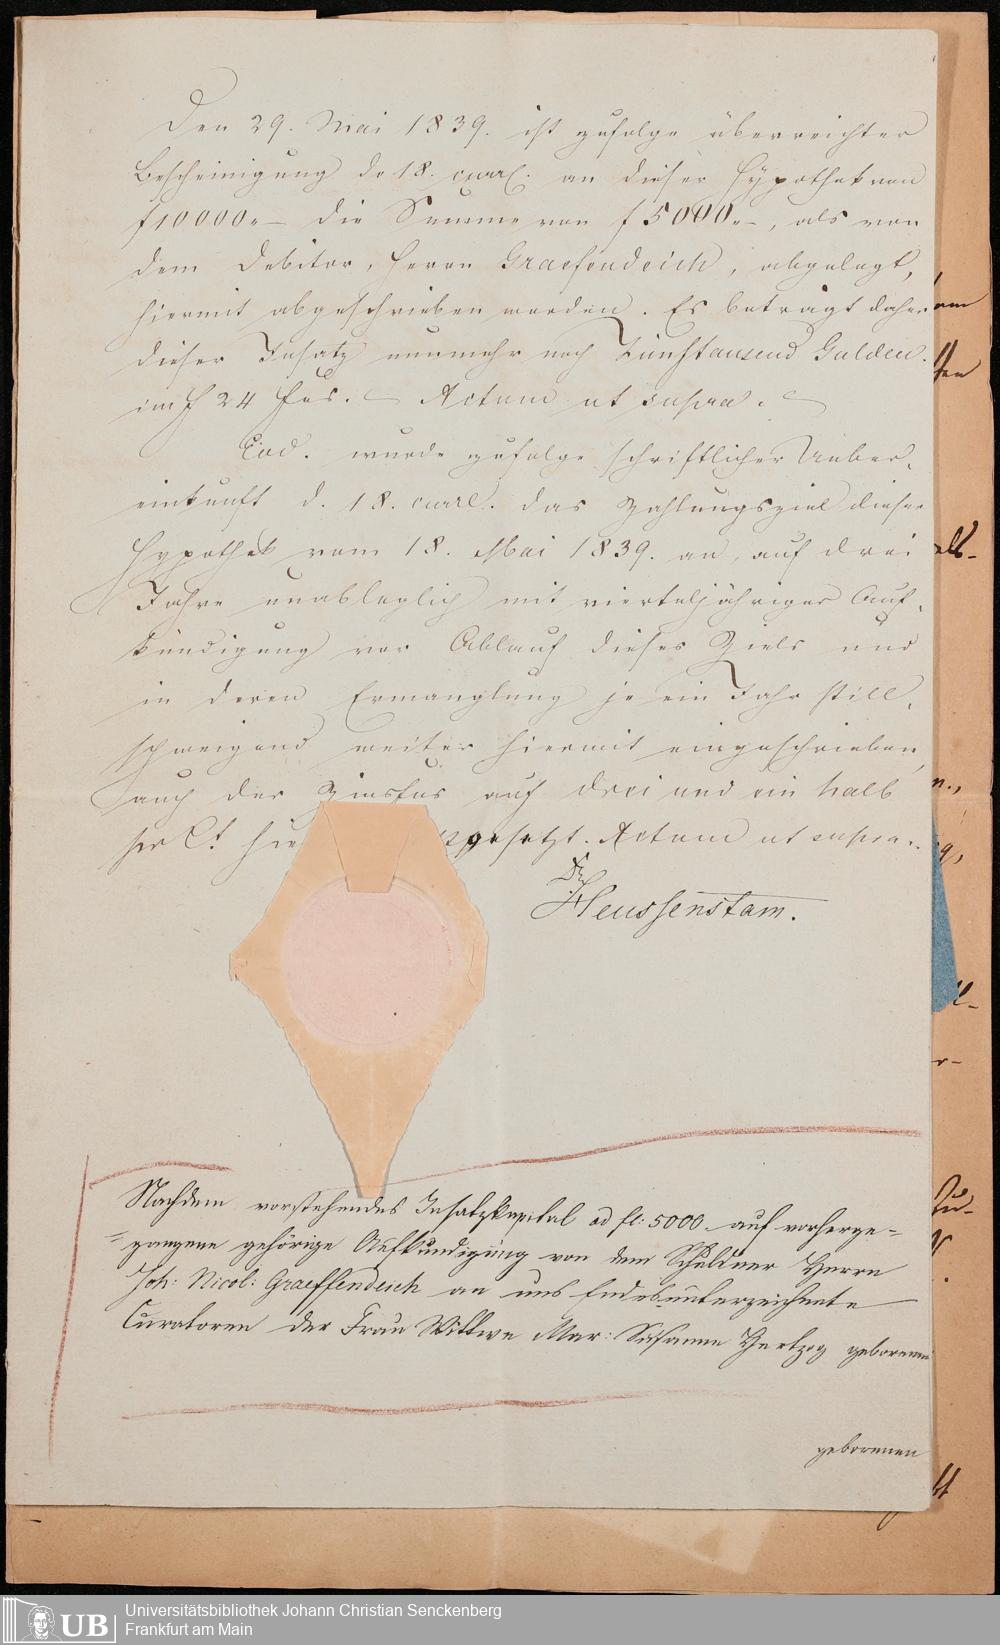 Den 29. Mai 1839. ist zufolge überreichter
Bescheinigung de 18. curr. an dieser Hypothek von
f 10000.- die Summe von f 5000.-, als von
dem Debitor, Herrn Graefendeich, abgelegt,
hiermit abgeschrieben worden. Es beträgt daher
dieser Insatz nunmehr noch Fünftausend Gulden.
im f 24 Fus. Actum ut supra.
Eod. wurde zufolge schriftlicher Ueber-
einkunft d. 18. curr. das Zahlungsziel dieser
Hypothek vom 18. Mai 1839. an, auf drei
Jahre unableglich mit vierteljähriger Auf-
kündigung vor Ablauf dieses Ziels und
in deren Ermanglung je ein Jahr still-
schweigend weiter hiermit eingeschrieben,
auch der Zinsfus auf drei und ein halb
per Ct. gesetzt. Actum ut supra.
Dr
Heussenstam.
Nachdem vorstehendes Insatzkapital ad fl: 5000.- auf vorherge-
gangene gehörige Aufkündigung von dem Schuldner Herrn
Joh: Nicol: Graeffendeich an uns Endesunterzeichnete
Curatoren der Frau Wittwe Mar: Susanne Hertzog geborenen
geborenen
Universitätsbibliothek Johann Christian Senckenberg
Frankfurt am Main
UB